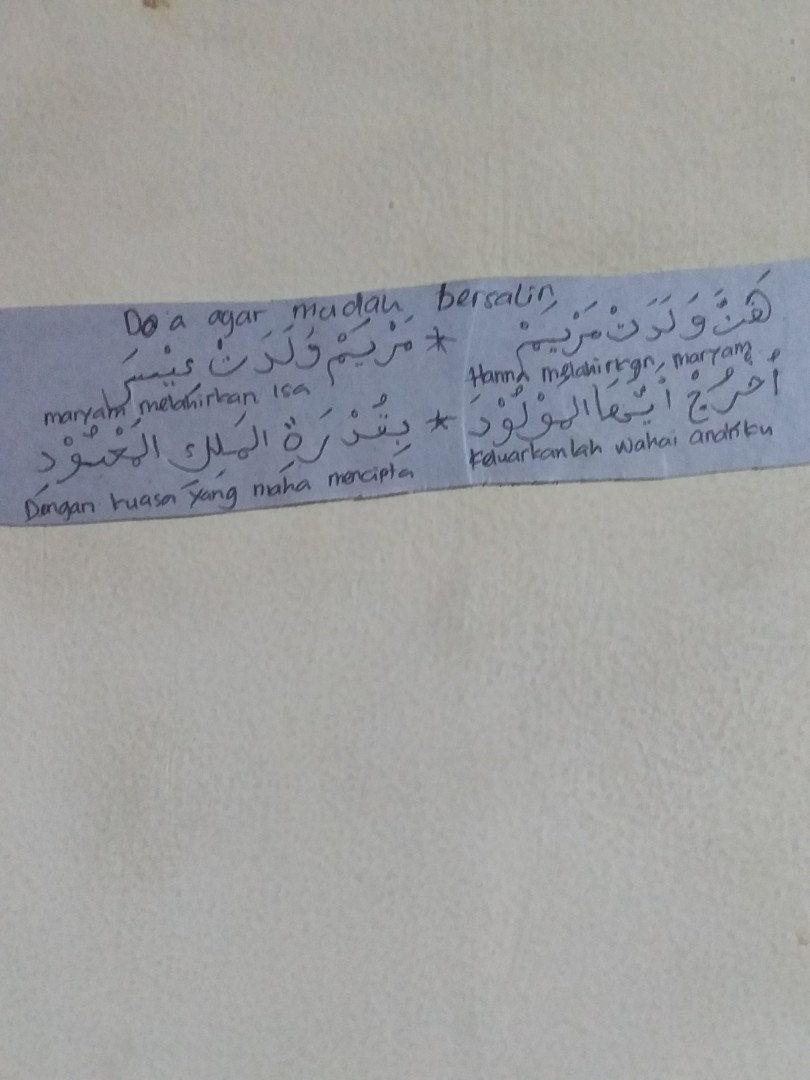 Do'a agar mudah bersalin
هَنَّ وَلَدَتْ مَرْيَمْ * مَرْيَمْ وَلَدَتْ عِيْسَى
Hanna melahirkan, maryam maryam melahirkan Isa
أُخْرُجْ أَيُّهَا الْمَوْلُوْدُ * بِقُدْرَةِ الْمَلِكِ الْمَعْبُوْدْ
Keluarkanlah wahai anakku Dengan kuasa yang maha mencipta